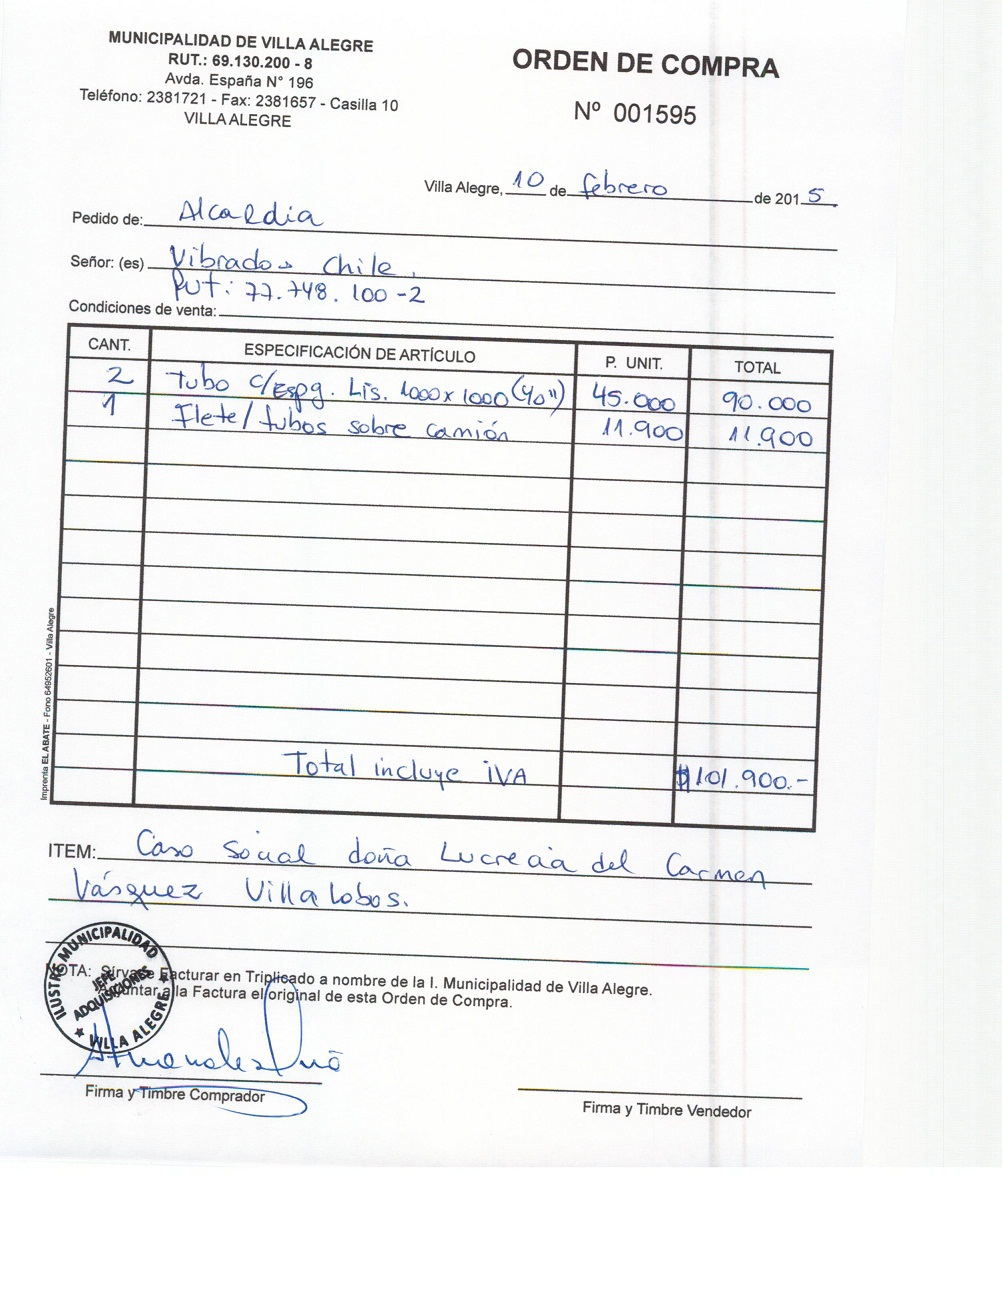 MUNICIPALIDAD DE VILLA ALEGRE
RUT.: 69.130.200 - 8
Avda. España N° 196
Teléfono: 2381721 - Fax: 2381657 - Casilla 10
VILLA ALEGRE
ORDEN DE COMPRA
Nº 001595
Villa Alegre, 10 de febrero de 2015
Pedido de: Alcaldia
Señor: (es) Vibrados Chile.
Rut: 77.748.100-2
Condiciones de venta:
CANT. ESPECIFICACIÓN DE ARTÍCULO P. UNIT. TOTAL
2 tubo c/Espg. Lis. 1000x1000 (40") 45.000 90.000
1 Flete/tubos sobre camión 11.900 11.900
Total incluye IVA $101.900.-
ITEM: Caso Social doña Lucrecia del Carmen
Vásquez Villalobos.
NOTA: Sírvase Facturar en Triplicado a nombre de la I. Municipalidad de Villa Alegre.
Adjuntar a la Factura el original de esta Orden de Compra.
ILUSTRE MUNICIPALIDAD
JEFE
ADQUISICIONES
VILLA ALEGRE
Firma y Timbre Comprador
Firma y Timbre Vendedor
Imprenta EL ABATE - Fono 64952601 - Villa Alegre